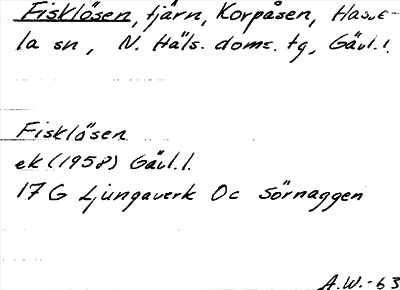 Fisklösen, tjärn, Korpåsen, Hassela
la sn, N. Häls. doms. tg, Gävl.l.
Fisklösen
ek (1958) Gävl.l.
17 G Ljungaverk Oc Sörnaggen
A.W.-63